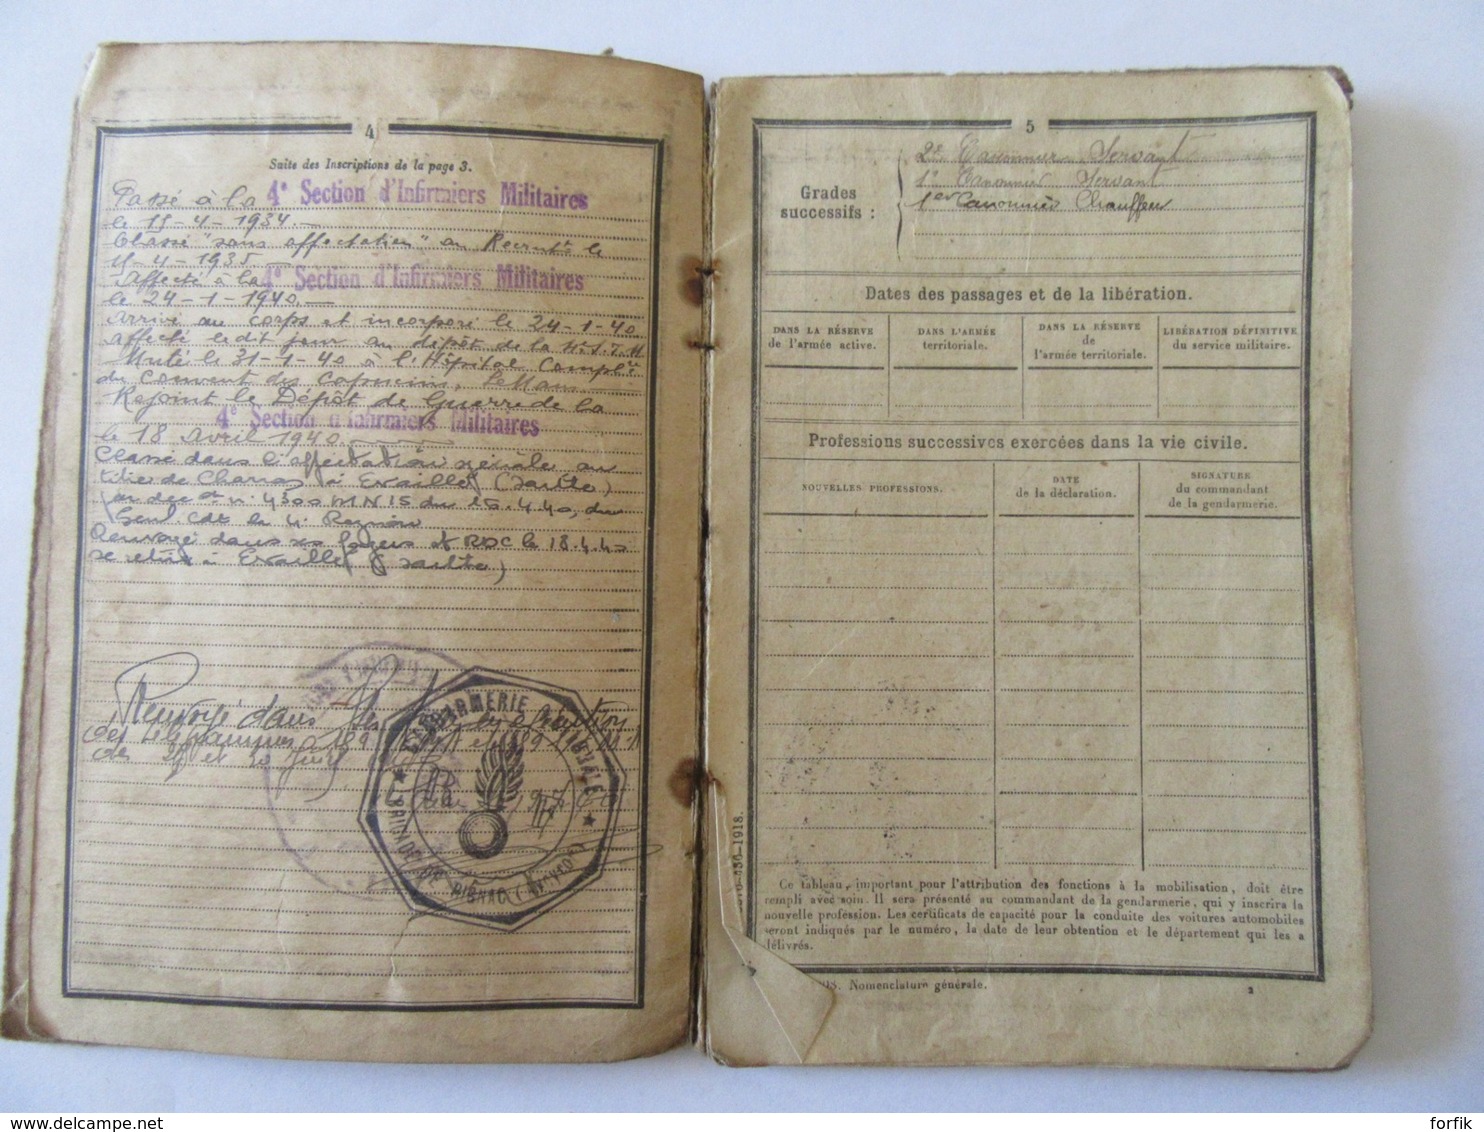 4
Suite des Inscriptions de la page 3.
Passé à la 4e Section d'Infirmiers Militaires
le 15-4-1934.
Classé "sans affectation" au Recrutt le
15-4-1935
Affecté à la 4e Section d'Infirmiers Militaires
le 24-1-1940.
Arrivé au corps et incorporé le 24-1-40
affecté le dit jour au dépôt de la
Muté le 31-1-40 à l'Hôpital Complre
du Couvent des Capucins, Le Mans
Rejoint le Dépôt de Guerre de la
4e Section d'Infirmiers Militaires
le 18 avril 1940.
Classé dans l'affectation spéciale au
titre de à Evaillé (Sarthe)
n° 4300 MN 15 du 15.4.40, du
Genl Cdt la 4e Région
Renvoyé dans ses foyers et RDC le 18.4.40
se retire à Evaillé (Sarthe)
Renvoyé dans ses foyers
des télégrammes
de et 20
GENDARMERIE NATIONALE
BRIGADE DE RIGNAC (AVEYRON)
5
Grades
successifs :
2e Canonnier Servant
1e Canonnier Servant
1er Canonnier Chauffeur
Dates des passages et de la libération.
DANS LA RÉSERVE
de l'armée active.
DANS L'ARMÉE
territoriale.
DANS LA RÉSERVE
DE
l'armée territoriale.
LIBÉRATION DÉFINITIVE
du service militaire.
Professions successives exercées dans la vie civile.
NOUVELLES PROFESSIONS.
DATE
de la déclaration.
SIGNATURE
du commandant
de la gendarmerie.
Ce tableau, important pour l'attribution des fonctions à la mobilisation, doit être
rempli avec soin. Il sera présenté au commandant de la gendarmerie, qui y inscrira la
nouvelle profession. Les certificats de capacité pour la conduite des voitures automobiles
seront indiqués par le numéro, la date de leur obtention et le département qui les a
délivrés.
Nomenclature générale.
2
-1918.
forfik